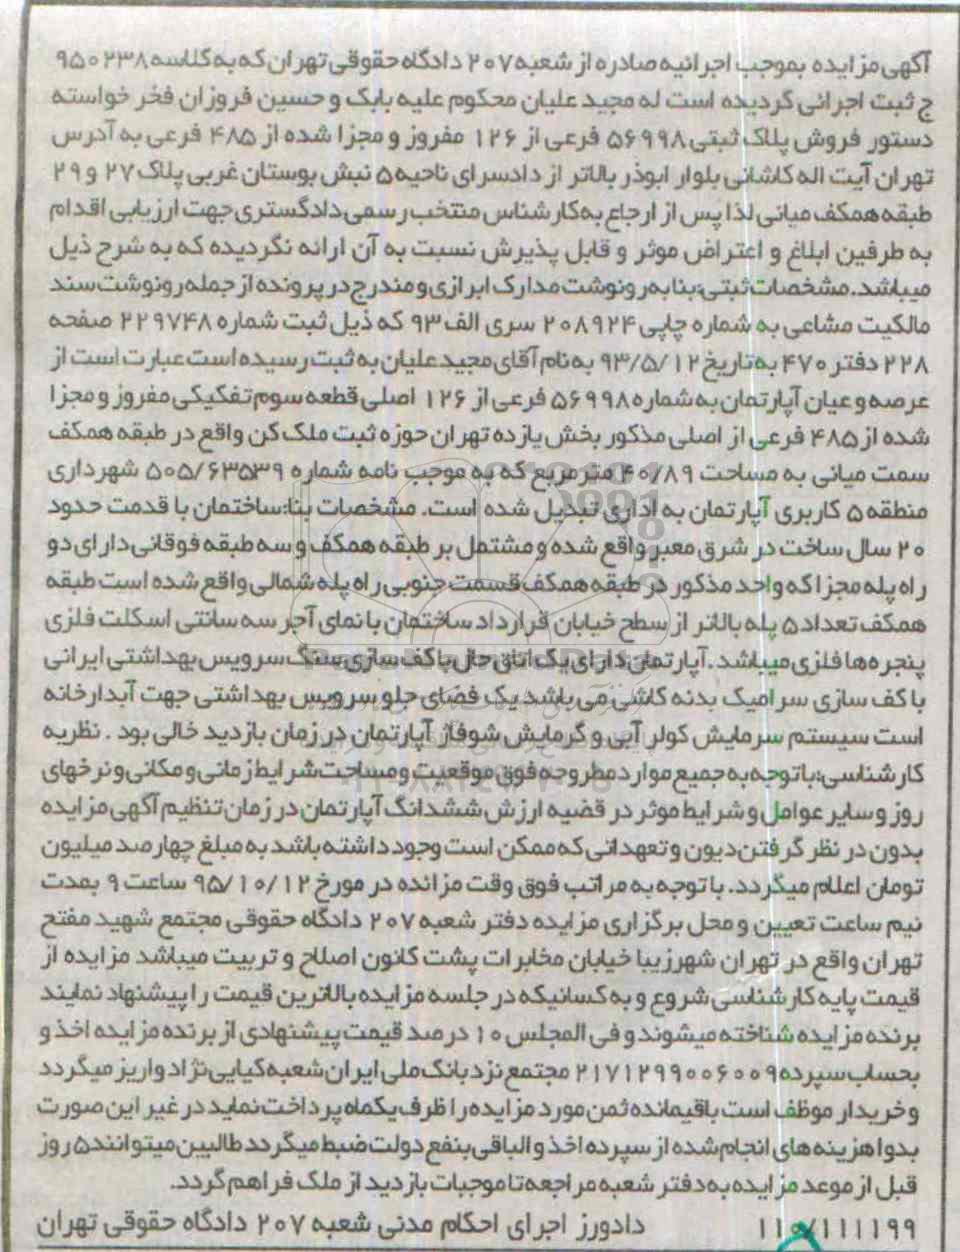 آگهی مزایده بموجب اجرائیه صادره از شعبه ۲۰۷ دادگاه حقوقی تهران که به کلاسه ۹۵۰۲۳۸
ج ثبت اجرائی گردیده است له مجید علیان محکوم علیه بابک و حسین فروزان فخر خواسته
دستور فروش پلاک ثبتی ۵۶۹۹۸ فرعی از ۱۲۶ مفروز و مجزا شده از ۴۸۵ فرعی به آدرس
تهران آیت اله کاشانی بلوار ابوذر بالاتر از دادسرای ناحیه ۵ نبش بوستان غربی پلاک ۲۷ و ۲۹
طبقه همکف میانی لذا پس از ارجاع به کارشناس منتخب رسمی دادگستری جهت ارزیابی اقدام
به طرفین ابلاغ و اعتراض موثر و قابل پذیرش نسبت به آن ارائه نگردیده که به شرح ذیل
میباشد. مشخصات ثبتی: بنا به رونوشت مدارک ابرازی و مندرج در پرونده از جمله رونوشت سند
مالکیت مشاعی به شماره چاپی ۲۰۸۹۲۴ سری الف ۹۳ که ذیل ثبت شماره ۲۲۹۷۴۸ صفحه
۲۲۸ دفتر ۴۷۰ به تاریخ ۹۳/۵/۱۲ به نام آقای مجید علیان به ثبت رسیده است عبارت است از
عرصه و عیان آپارتمان به شماره ۵۶۹۹۸ فرعی از ۱۲۶ اصلی قطعه سوم تفکیکی مفروز و مجزا
شده از ۴۸۵ فرعی از اصلی مذکور بخش یازده تهران حوزه ثبت ملک کن واقع در طبقه همکف
سمت میانی به مساحت ۴۰/۸۹ مترمربع که به موجب نامه شماره ۵۰۵/۶۳۵۳۹ شهرداری
منطقه ۵ کاربری آپارتمان به اداری تبدیل شده است. مشخصات بنا: ساختمان با قدمت حدود
۲۰ سال ساخت در شرق معبر واقع شده و مشتمل بر طبقه همکف و سه طبقه فوقانی دارای دو
راه پله مجزا که واحد مذکور در طبقه همکف قسمت جنوبی راه پله شمالی واقع شده است طبقه
همکف تعداد ۵ پله بالاتر از سطح خیابان قرار داد ساختمان با نمای آجر سه سانتی اسکلت فلزی
پنجره ها فلزی میباشد. آپارتمان دارای یک اتاق حال با کف سازی سنگ سرویس بهداشتی ایرانی
با کف سازی سرامیک بدنه کاشی می باشد یک فضای جلو سرویس بهداشتی جهت آبدارخانه
است سیستم سرمایش کولر آبی و گرمایش شوفاژ آپارتمان در زمان بازدید خالی بود . نظریه
کارشناسی: با توجه به جمیع موارد مطروحه فوق موقعیت و مساحت شرایط زمانی و مکانی و نرخهای
روز و سایر عوامل و شرایط موثر در قضیه ارزش ششدانگ آپارتمان در زمان تنظیم آگهی مزایده
بدون در نظر گرفتن دیون و تعهداتی که ممکن است وجود داشته باشد به مبلغ چهارصد میلیون
تومان اعلام میگردد. با توجه به مراتب فوق وقت مزائده در مورخ ۹۵/۱۰/۱۲ ساعت ۹ بمدت
نیم ساعت تعیین و محل برگزاری مزایده دفتر شعبه ۲۰۷ دادگاه حقوقی مجتمع شهید مفتح
تهران واقع در تهران شهرزیبا خیابان مخابرات پشت کانون اصلاح و تربیت میباشد مزایده از
قیمت پایه کارشناسی شروع و به کسانیکه در جلسه مزایده بالاترین قیمت را پیشنهاد نمایند
برنده مزایده شناخته میشوند و فی المجلس ۱۰ درصد قیمت پیشنهادی از برنده مزایده اخذ و
بحساب سپرده ۲۱۷۱۲۹۹۰۰۶۰۰۹ مجتمع نزد بانک ملی ایران شعبه کیایی نژاد واریز میگردد
و خریدار موظف است باقیمانده ثمن مورد مزایده را ظرف یکماه پرداخت نماید در غیر این صورت
بدوا هزینه های انجام شده از سپرده اخذ و الباقی بنفع دولت ضبط میگردد طالبین میتوانند ۵ روز
قبل از موعد مزایده به دفتر شعبه مراجعه تا موجبات بازدید از ملک فراهم گردد.
۱۱۰/۱۱۱۱۹۹ دادورز اجرای احکام مدنی شعبه ۲۰۷ دادگاه حقوقی تهران